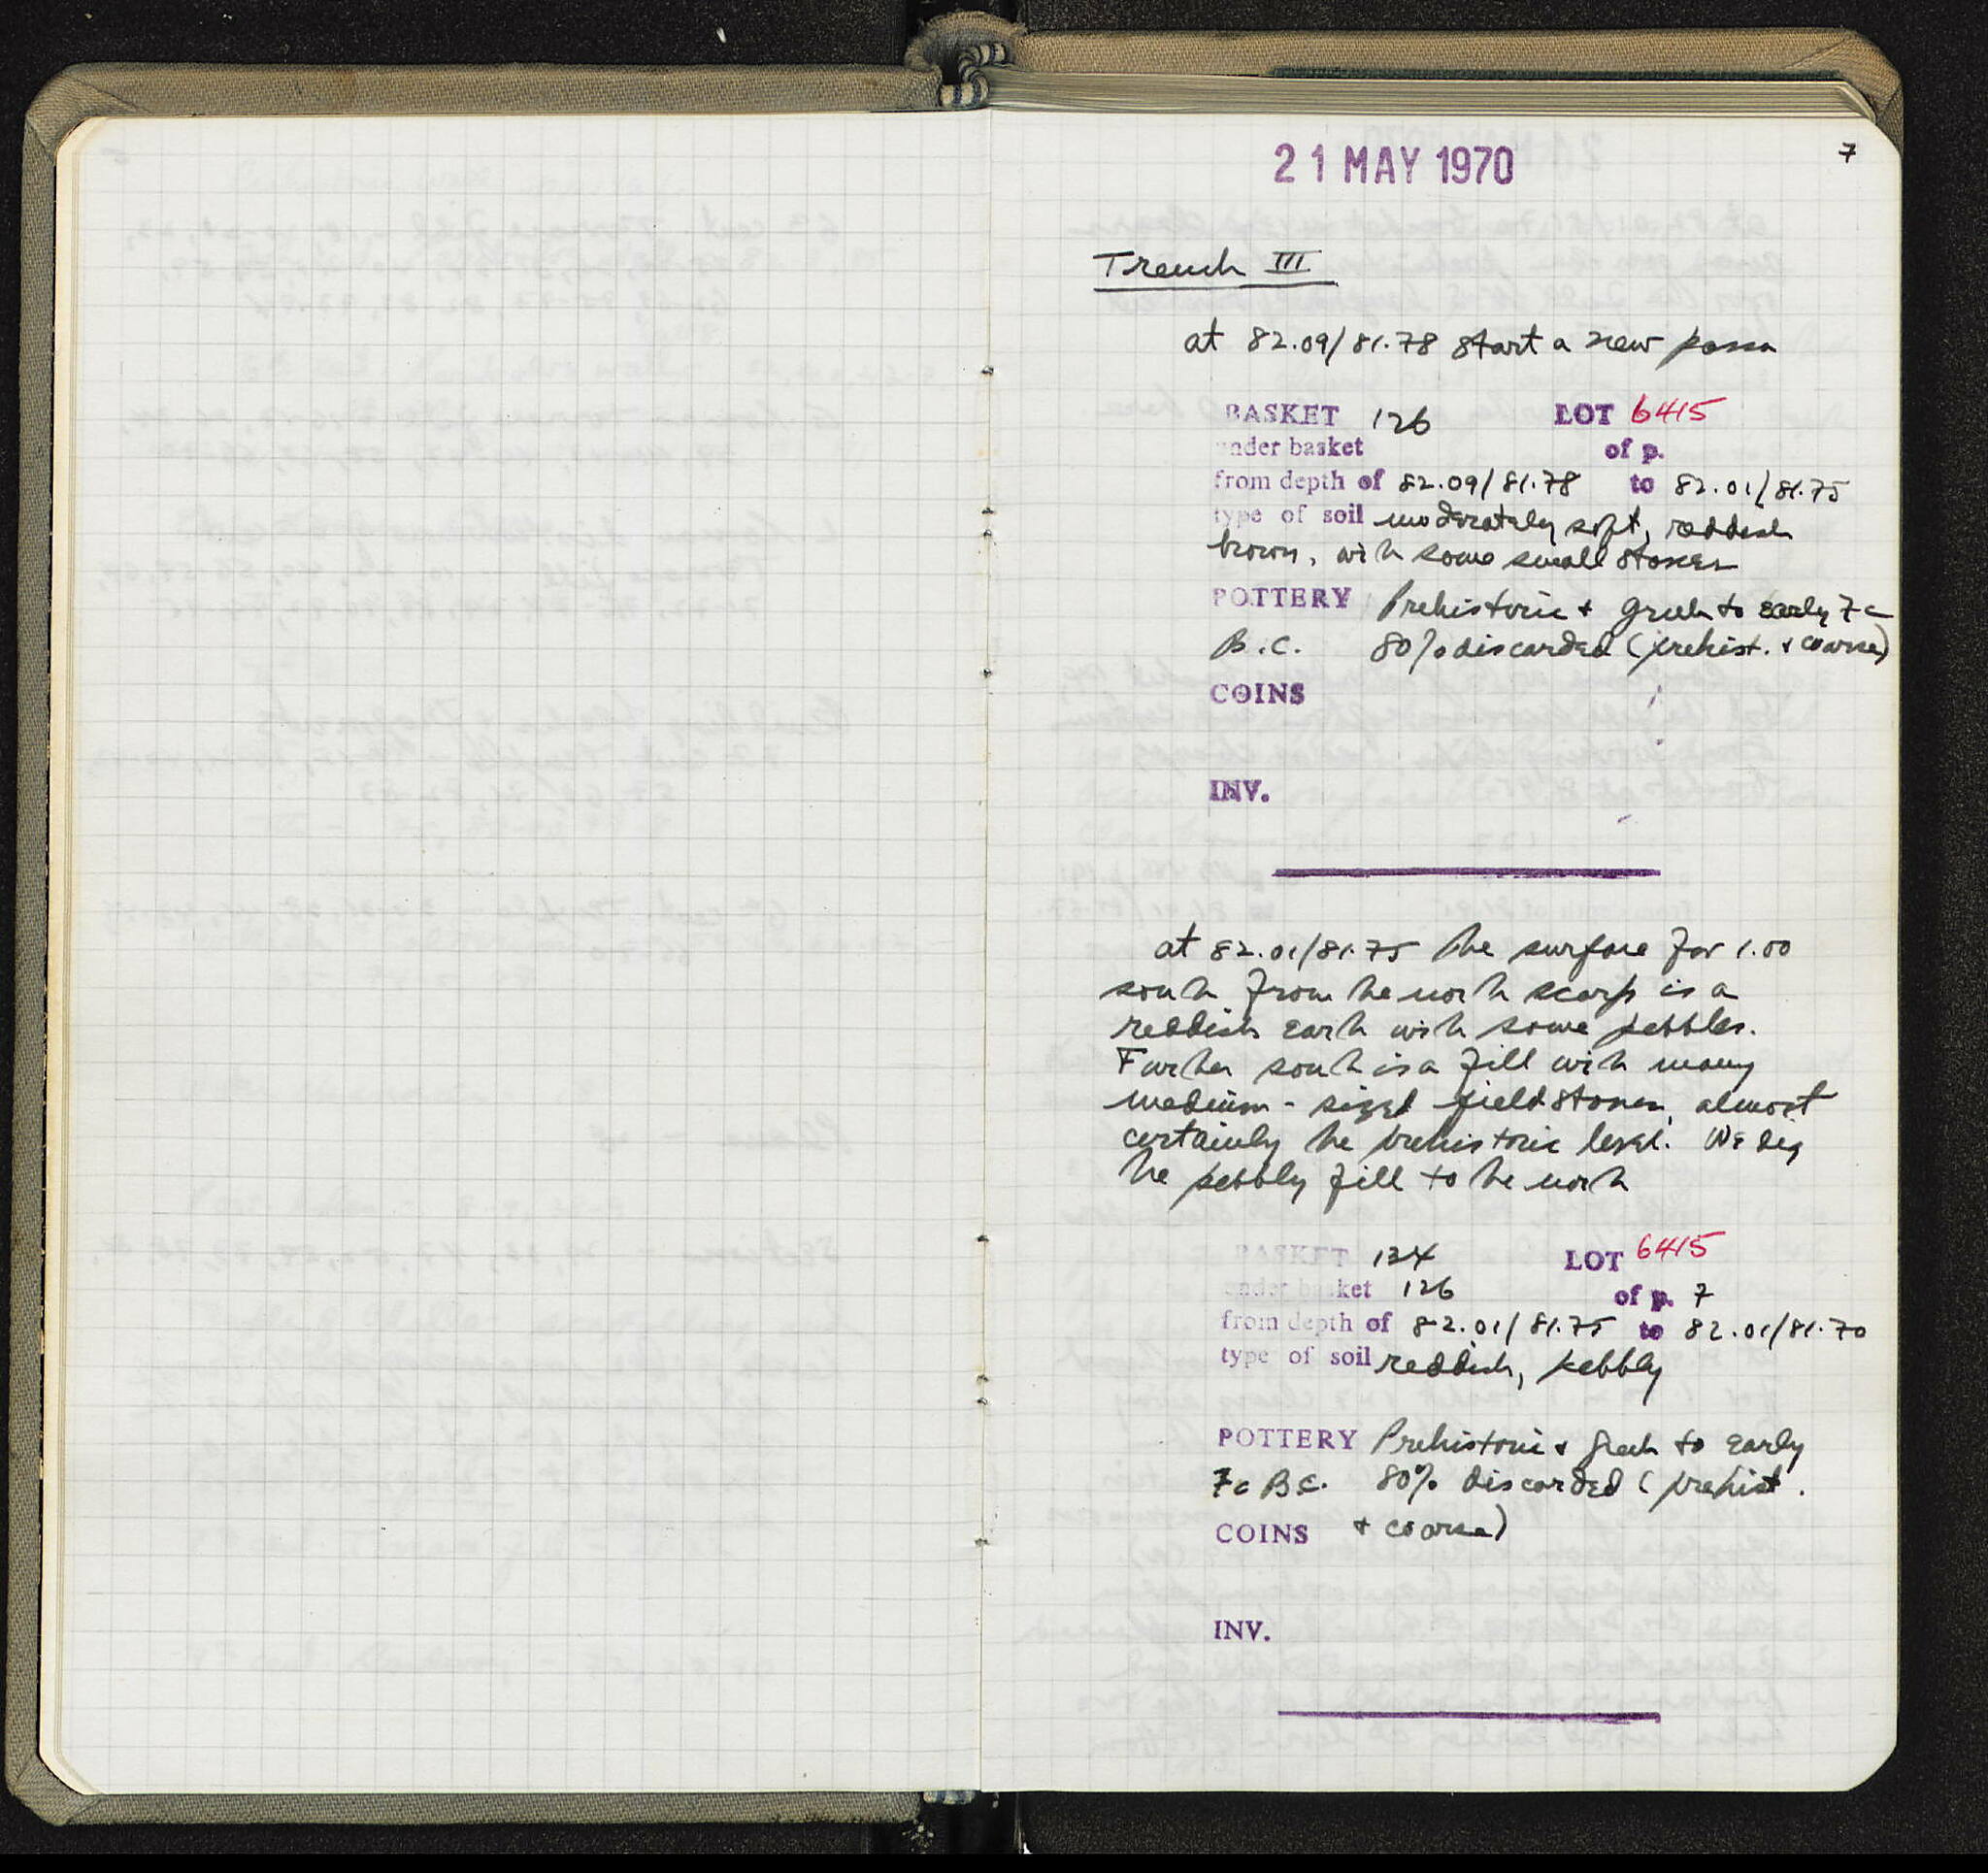 21 MAY 1970
7
Trench III
at 82.09/81.78 start a new passa
BASKET 126 LOT 6415
under basket of p.
from depth of 82.09/81.78 to 82.01/81.75
type of soil moderately soft, reddish
brown, with some small stones
POTTERY Prehistoric + Greek to early 7c
B.C. 80% discarded (prehist. + coarse)
COINS
INV.
at 82.01/81.75 the surface for 1.00
south from the north scarp is a
reddish earth with some pebbles.
Further south is a fill with many
medium-sized fieldstones, almost
certainly the prehistoric level. We dig
the pebbly fill to the north
BASKET 134 LOT 6415
under basket 126 of p. 7
from depth of 82.01/81.75 to 82.01/81.70
type of soil reddish, pebbly
POTTERY Prehistoric + Greek to early
7c B.C. 80% discarded (prehist.
COINS + coarse)
INV.